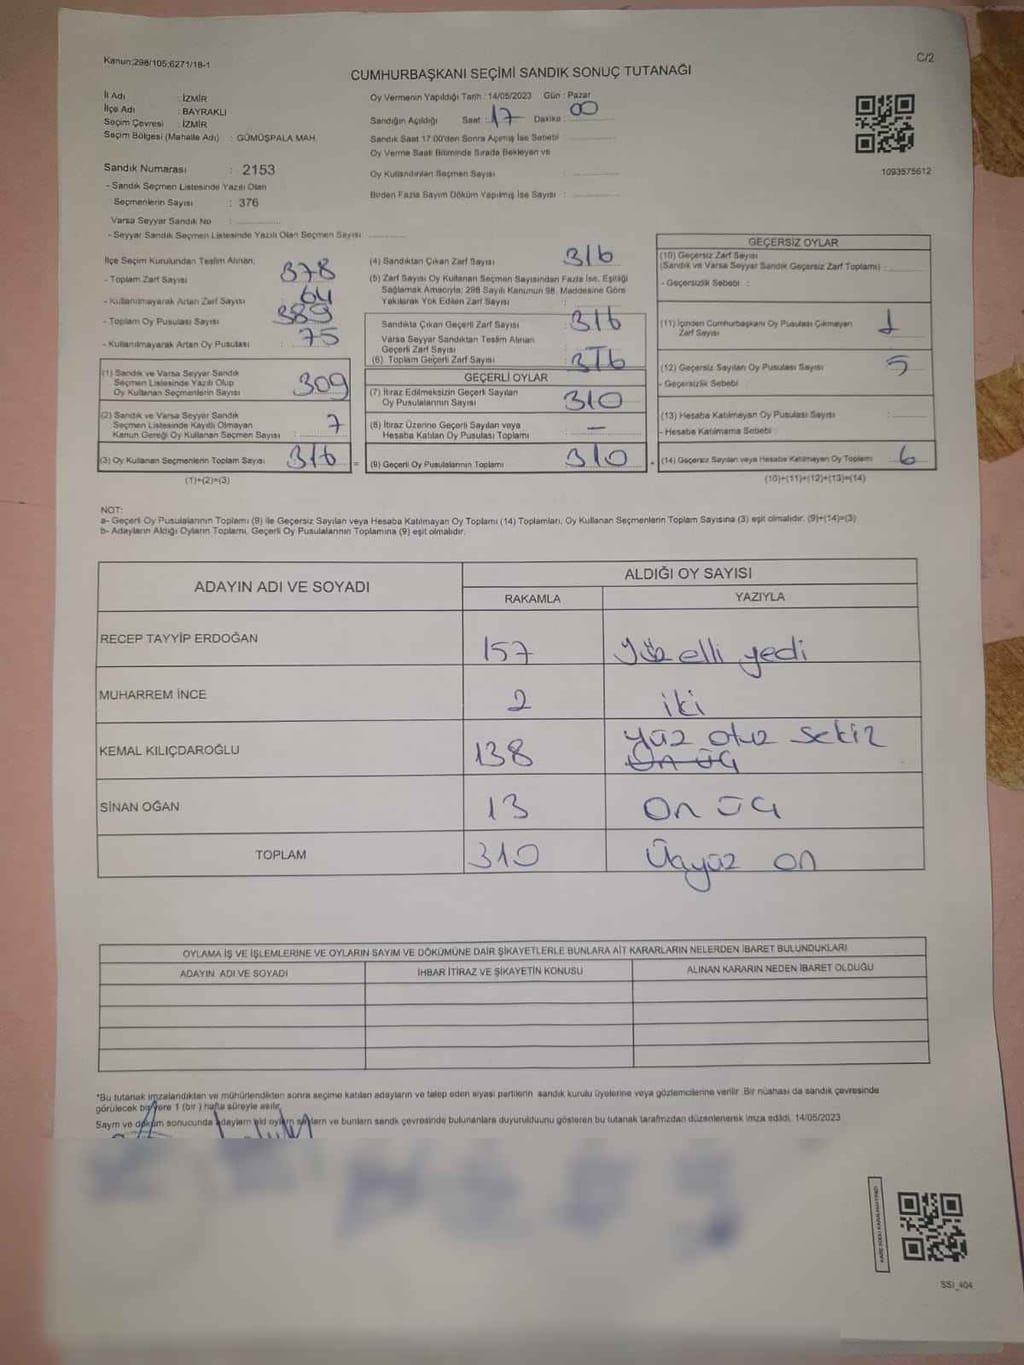 Kanun:298/105;6271/18-1
C/2
CUMHURBAŞKANI SEÇİMİ SANDIK SONUÇ TUTANAĞI
İl Adı : İZMİR
İlçe Adı : BAYRAKLI
Seçim Çevresi : İZMİR
Seçim Bölgesi (Mahalle Adı) : GÜMÜŞPALA MAH.
Oy Vermenin Yapıldığı Tarih : 14/05/2023 Gün : Pazar
Sandığın Açıldığı Saat : 17 Dakika : 00
Sandık Saat 17:00'den Sonra Açılmış İse Sebebi :
Oy Verme Saati Bitiminde Sırada Bekleyen ve
Oy Kullandırılan Seçmen Sayısı :
Birden Fazla Sayım Döküm Yapılmış İse Sayısı :
1093575612
Sandık Numarası : 2153
- Sandık Seçmen Listesinde Yazılı Olan
Seçmenlerin Sayısı : 376
Varsa Seyyar Sandık No :
- Seyyar Sandık Seçmen Listesinde Yazılı Olan Seçmen Sayısı :
İlçe Seçim Kurulundan Teslim Alınan;
- Toplam Zarf Sayısı : 378
- Kullanılmayarak Artan Zarf Sayısı : 64
- Toplam Oy Pusulası Sayısı : 389
- Kullanılmayarak Artan Oy Pusulası : 75
(1) Sandık ve Varsa Seyyar Sandık
Seçmen Listesinde Yazılı Olup
Oy Kullanan Seçmenlerin Sayısı : 309
(2) Sandık ve Varsa Seyyar Sandık
Seçmen Listesinde Kayıtlı Olmayan
Kanun Gereği Oy Kullanan Seçmen Sayısı : 7
(3) Oy Kullanan Seçmenlerin Toplam Sayısı : 316
(1)+(2)=(3)
(4) Sandıktan Çıkan Zarf Sayısı : 316
(5) Zarf Sayısı Oy Kullanan Seçmen Sayısından Fazla İse, Eşitliği
Sağlamak Amacıyla; 298 Sayılı Kanunun 98. Maddesine Göre
Yakılarak Yok Edilen Zarf Sayısı :
Sandıkta Çıkan Geçerli Zarf Sayısı : 316
Varsa Seyyar Sandıktan Teslim Alınan
Geçerli Zarf Sayısı :
(6) Toplam Geçerli Zarf Sayısı : 316
GEÇERLİ OYLAR
(7) İtiraz Edilmeksizin Geçerli Sayılan
Oy Pusulalarının Sayısı : 310
(8) İtiraz Üzerine Geçerli Sayılan veya
Hesaba Katılan Oy Pusulası Toplamı : —
(9) Geçerli Oy Pusulalarının Toplamı : 310
GEÇERSİZ OYLAR
(10) Geçersiz Zarf Sayısı
(Sandık ve Varsa Seyyar Sandık Geçersiz Zarf Toplamı) :
- Geçersizlik Sebebi :
(11) İçinden Cumhurbaşkanı Oy Pusulası Çıkmayan
Zarf Sayısı : 1
(12) Geçersiz Sayılan Oy Pusulası Sayısı : 5
- Geçersizlik Sebebi :
(13) Hesaba Katılmayan Oy Pusulası Sayısı :
- Hesaba Katılmama Sebebi :
(14) Geçersiz Sayılan veya Hesaba Katılmayan Oy Toplamı : 6
(10)+(11)+(12)+(13)=(14)
NOT:
a- Geçerli Oy Pusulalarının Toplamı (9) ile Geçersiz Sayılan veya Hesaba Katılmayan Oy Toplamı (14) Toplamları, Oy Kullanan Seçmenlerin Toplam Sayısına (3) eşit olmalıdır. (9)+(14)=(3)
b- Adayların Aldığı Oyların Toplamı, Geçerli Oy Pusulalarının Toplamına (9) eşit olmalıdır.
ADAYIN ADI VE SOYADI
ALDIĞI OY SAYISI
RAKAMLA YAZIYLA
RECEP TAYYİP ERDOĞAN 157 Yüz elli yedi
MUHARREM İNCE 2 iki
KEMAL KILIÇDAROĞLU 138 yüz otuz sekiz
on üç
SİNAN OĞAN 13 on üç
TOPLAM 310 Üçyüz on
OYLAMA İŞ VE İŞLEMLERİNE VE OYLARIN SAYIM VE DÖKÜMÜNE DAİR ŞİKAYETLERLE BUNLARA AİT KARARLARIN NELERDEN İBARET BULUNDUKLARI
ADAYIN ADI VE SOYADI İHBAR İTİRAZ VE ŞİKAYETİN KONUSU ALINAN KARARIN NEDEN İBARET OLDUĞU
*Bu tutanak imzalandıktan ve mühürlendikten sonra seçime katılan adayların ve talep eden siyasi partilerin sandık kurulu üyelerine veya gözlemcilerine verilir. Bir nüshası da sandık çevresinde
görülecek bir yere 1 (bir) hafta süreyle asılır.
Sayım ve döküm sonucunda adayların aldığı oyların sayıların ve bunların sandık çevresinde bulunanlara duyurulduğunu gösteren bu tutanak tarafımızdan düzenlenerek imza edildi. 14/05/2023
SSI_404